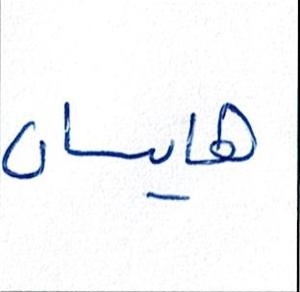 هايسان